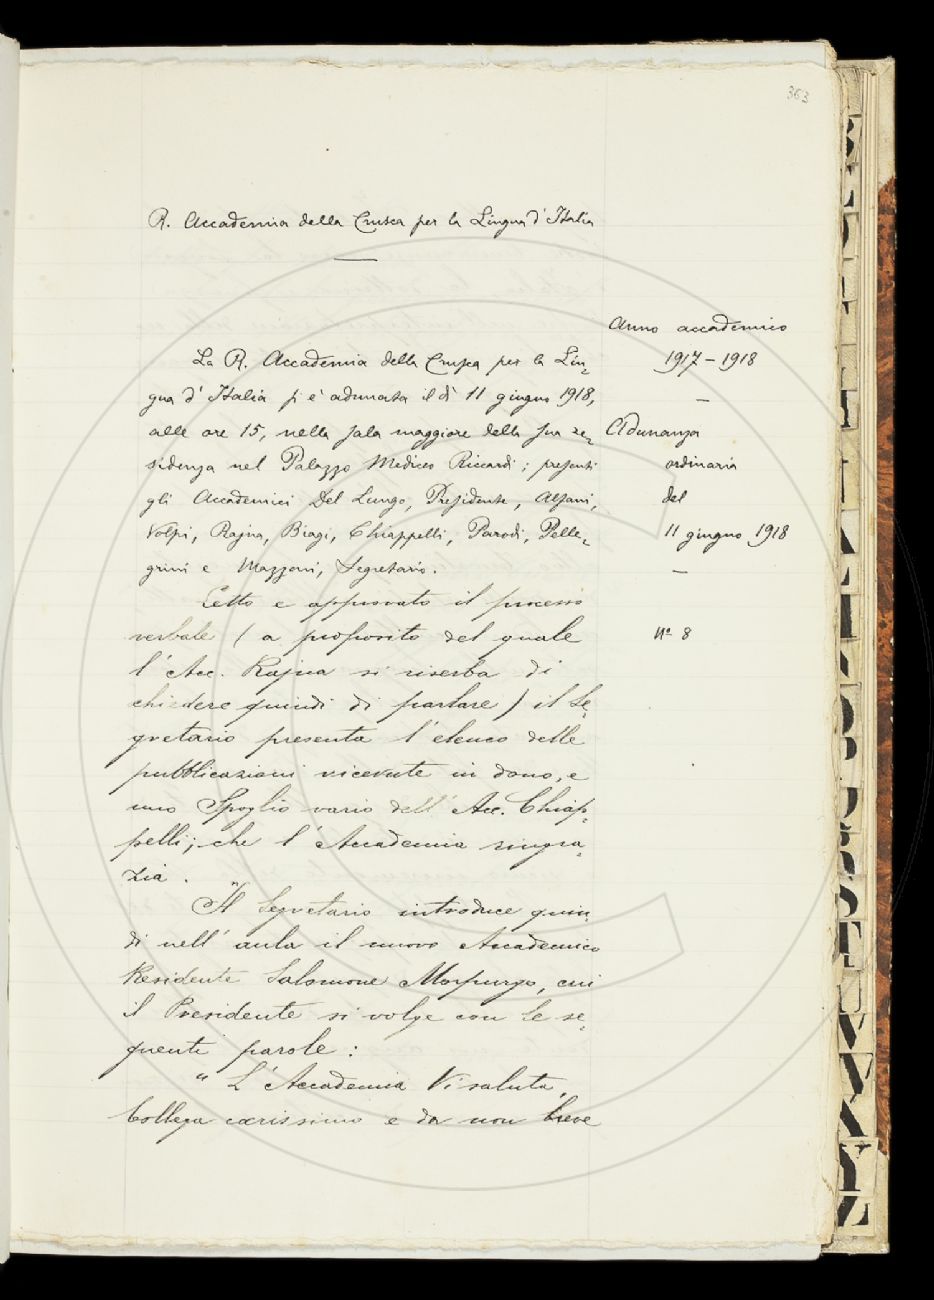 363
R. Accademia della Crusca per la Lingua d'Italia
Anno accademico
1917-1918
La R. Accademia della Crusca per la Lin-
gua d'Italia si è adunata il dì 11 giugno 1918,
alle ore 15, nella sala maggiore della sua re-
sidenza nel Palazzo Mediceo Riccardi; presenti
gli Accademici Del Lungo, Presidente, Alfani,
Volpi, Rajna, Biagi, Chiappelli, Parodi, Pelle-
grini e Mazzoni, Segretario.
Adunanza
ordinaria
del
11 giugno 1918
Letto e approvato il processo
verbale (a proposito del quale
l'Acc. Rajna si riserba di
chiedere quindi di parlare) il Se-
gretario presenta l'elenco delle
pubblicazioni ricevute in dono, e
uno Spoglio vario dell'Acc. Chiap-
pelli; che l'Accademia ringra-
zia.
Nº 8
Il Segretario introduce quin-
di nell'aula il nuovo Accademico
Residente Salomone Morpurgo, cui
il Presidente si volge con le se-
guenti parole:
"L'Accademia Vi saluta,
Collega carissimo e da non breve
B
C
D
I
L
M
O
P
Q
R
S
T
U
V
W
X
Y
Z